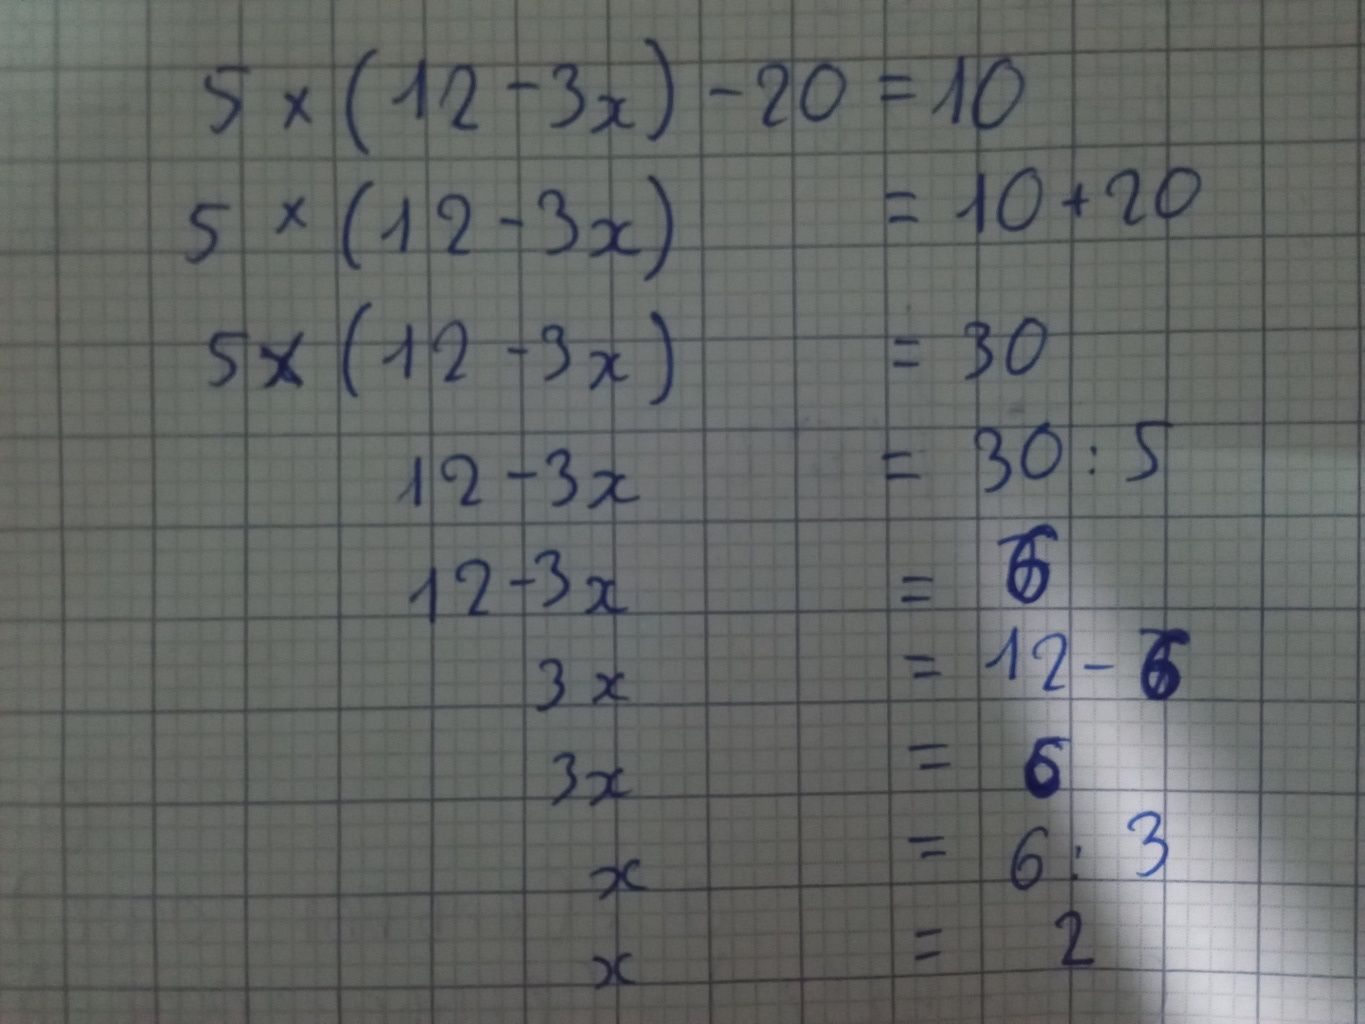 5 × (12 - 3x) - 20 = 10
5 × (12 - 3x) = 10 + 20
5 × (12 - 3x) = 30
12 - 3x = 30 : 5
12 - 3x = 6
3x = 12 - 6
3x = 6
x = 6 : 3
x = 2